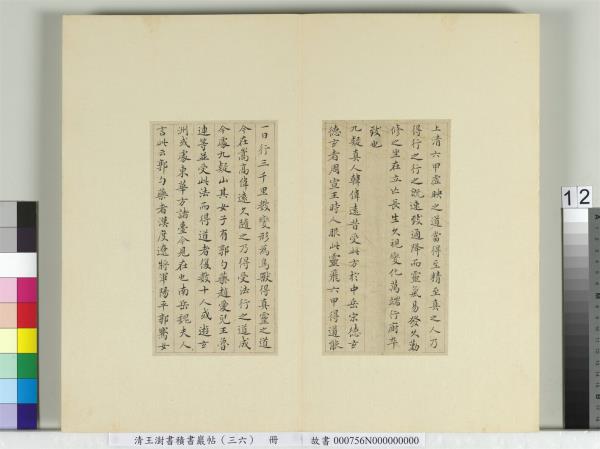 上清六甲虛映之道當得至精至真之人乃
得行之行之既速致通降而靈氣易發久勤
修之坐在立亡長生久視變化萬端行廚卒
致也
九疑真人韓偉遠昔受此方於中岳宋德玄
德玄者周宣王時人服此靈飛六甲得道能
一日行三千里數變形為鳥獸得真靈之道
今在嵩高偉遠久隨之乃得受法行之道成
今處九疑山其女子有郭勺藥趙愛兒王魯
連等並受此法而得道者復數十人或遊玄
洲或處東華方諸臺今見在也南岳魏夫人
言此云郭勺藥者漢度遼將軍陽平郭騫女
12
清王澍書積書巖帖（三六） 冊 故書 000756N000000000